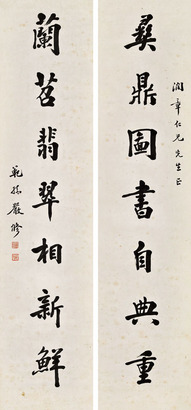 潤章仁兄先生正
彝鼎圖書自典重
蘭苕翡翠相新鮮
範孫嚴修